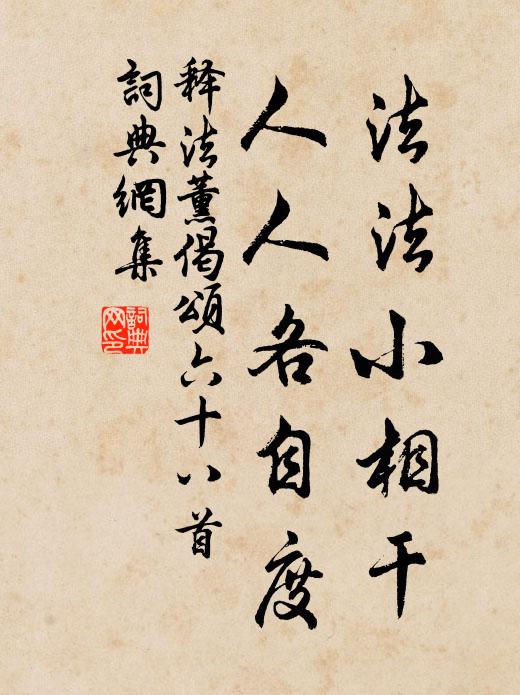 法法小相干
人人各自度
释法薰偈颂六十八首
詞典網集
詞典网印